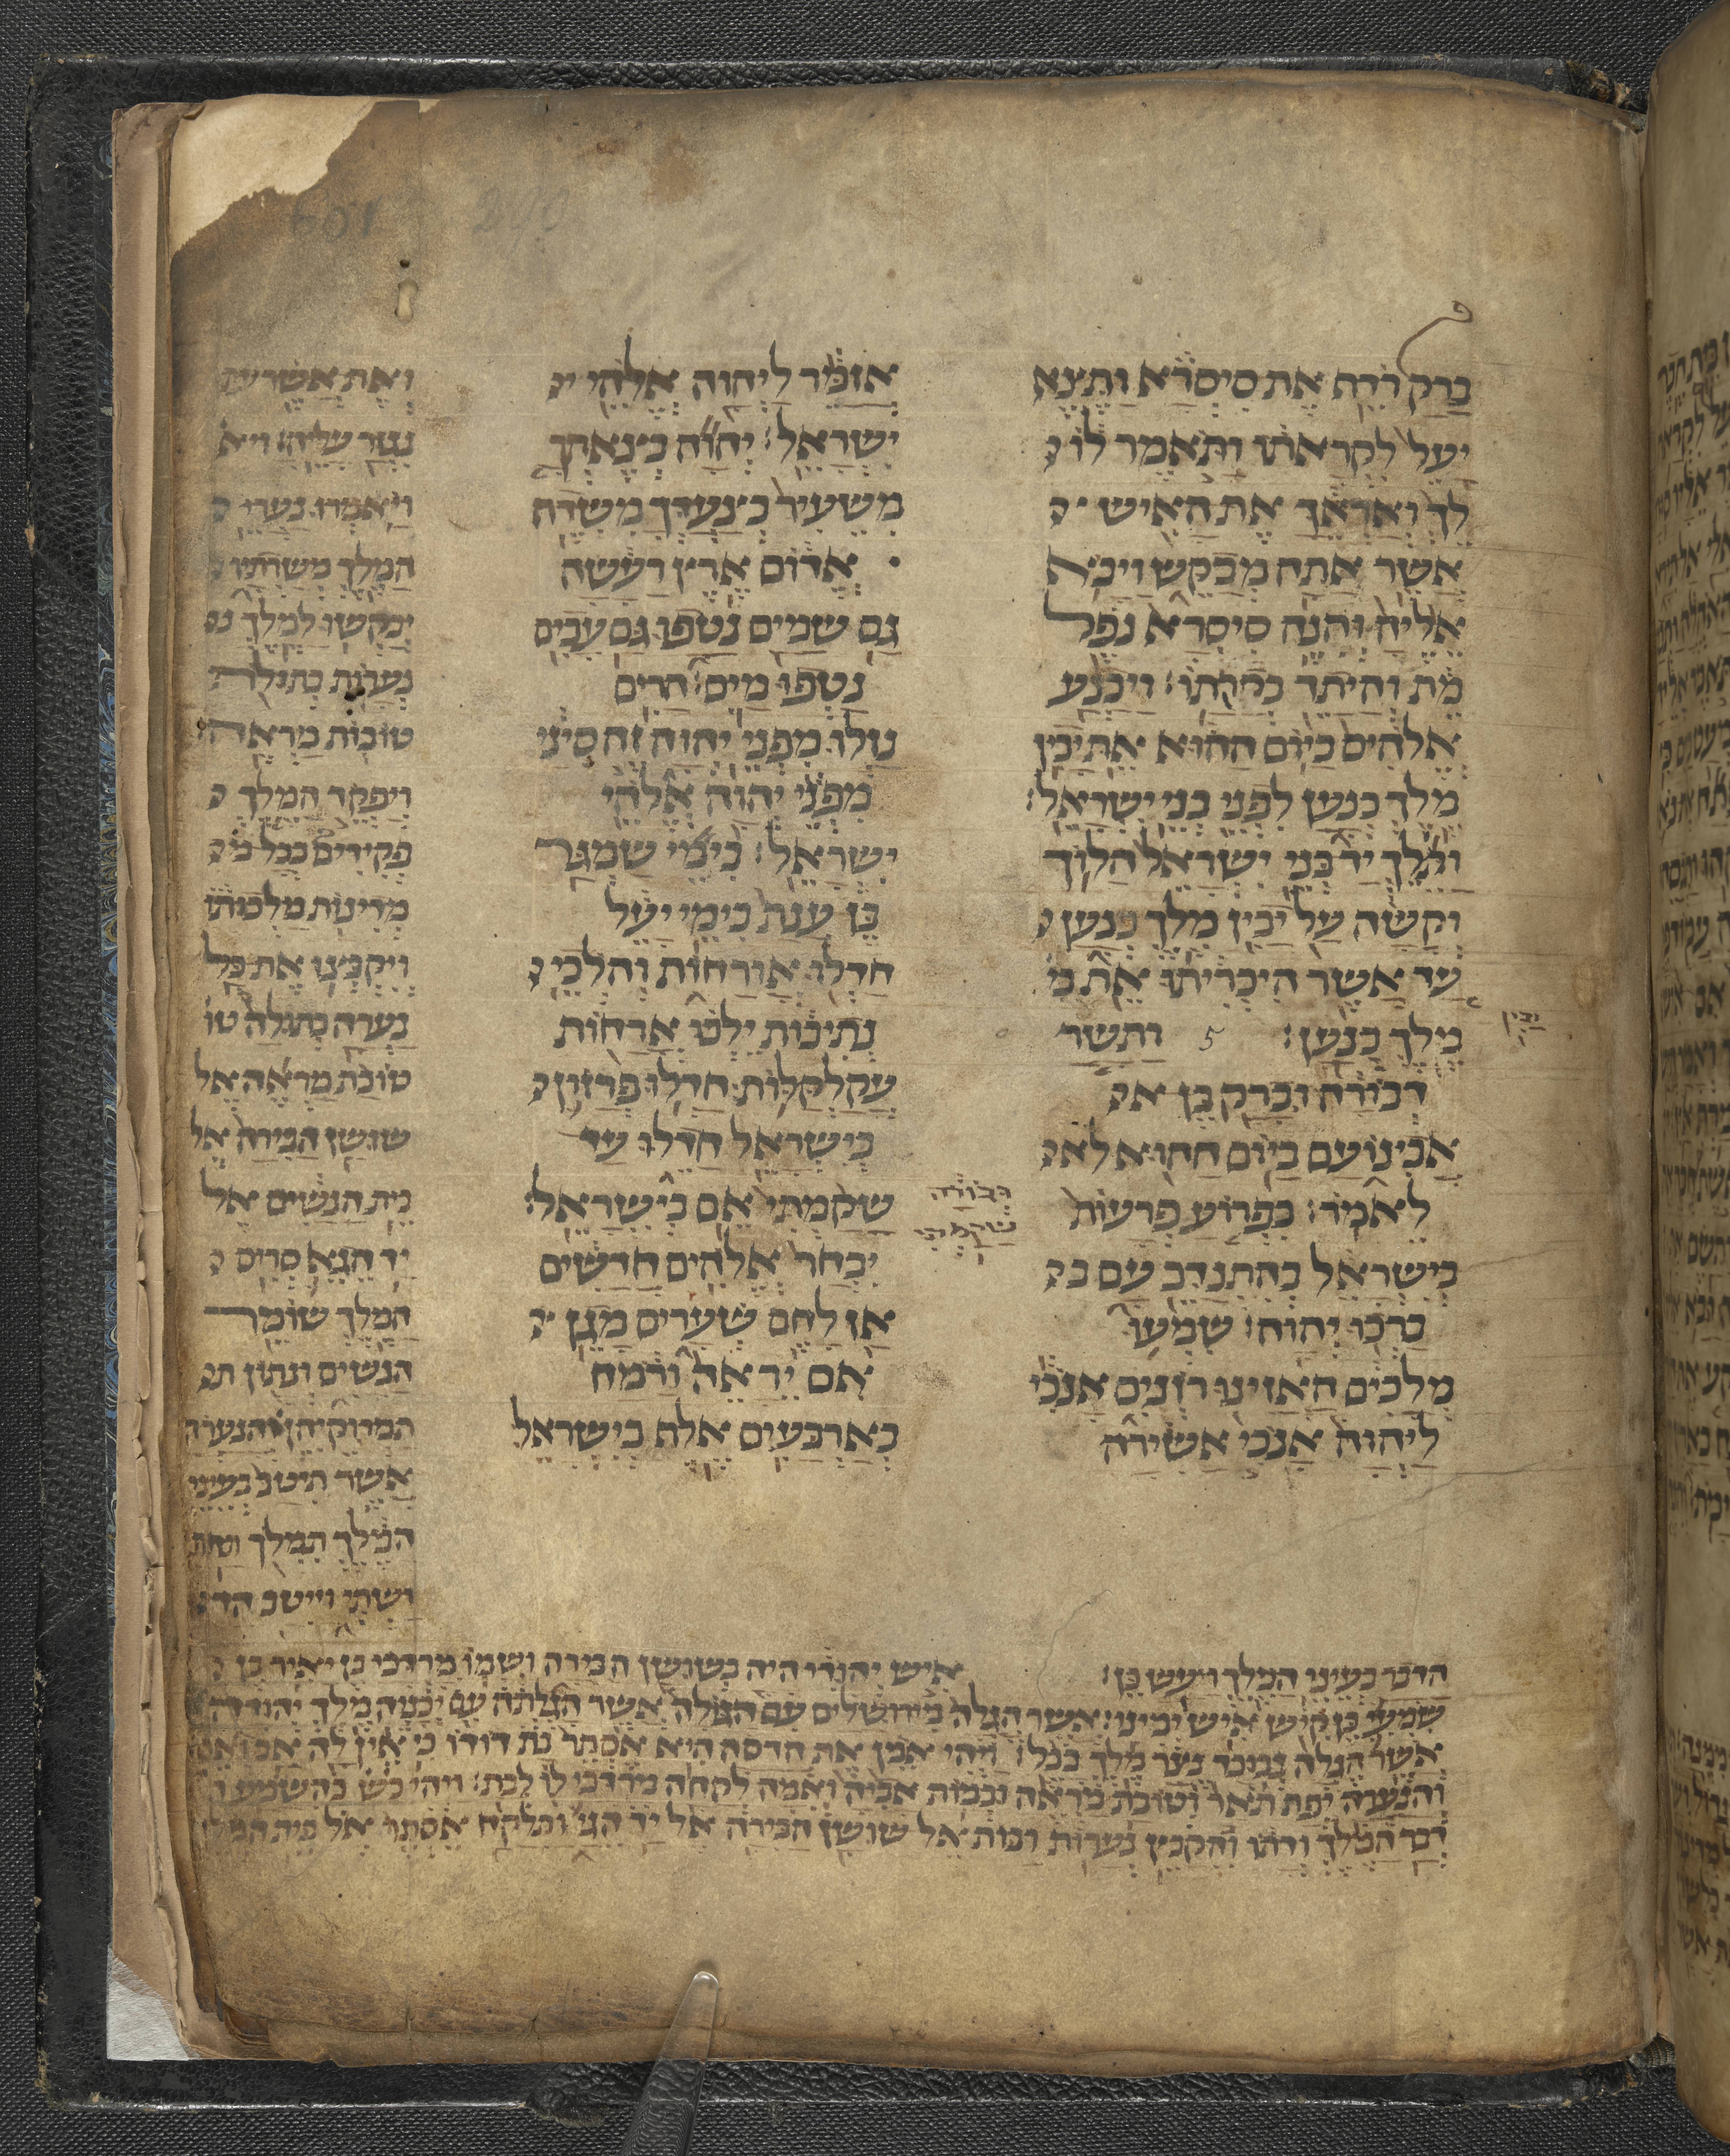 ברק רדף את סיסרא ותצא
יעל לקראתו ותאמר לו
לך ואראך את האיש
אשר אתה מבקש ויבא
אליה והנה סיסרא נפל
מת והיתד ברקתו׃ ויכנע
אלהים ביום ההוא את יבין
מלך כנען לפני בני ישראל׃
ותלך יד בני ישראל הלוך
וקשה על יבין מלך כנען
עד אשר הכריתו את
יבין
מלך כנען׃ 5 ותשר
דבורה וברק בן א
אבינועם ביום ההוא
לאמר׃ בפרוע פרעות
בישראל בהתנדב עם ב
ברכו יהוה׃ שמעו
מלכים האזינו רזנים אנכי
ליהוה אנכי אשירה
אזמר ליהוה אלהי
ישראל׃ יהוה בצאתך
משעיר בצעדך משדה
אדום ארץ רעשה
גם שמים נטפו גם עבים
נטפו מים׃ הרים
נזלו מפני יהוה זה סיני
מפני יהוה אלהי
ישראל׃ בימי שמגר
בן ענת בימי יעל
חדלו אורחות והלכי
נתיבות ילכו ארחות
עקלקלות׃ חדלו פרזון
בישראל חדלו עד
דבורה
שקמתי
שקמתי אם בישראל׃
יבחר אלהים חדשים
אז לחם שערים מגן
אם יראה ורמח
בארבעים אלף בישראל
ואת אשר
נגזר עליה׃
ויאמרו נערי
המלך משרתיו
יבקשו למלך
נערות בתולה
טובות מראה׃
ויפקד המלך
פקידים בכל מ
מדינות מלכותו
ויקבצו את כל
נערה בתולה טו
טובת מראה אל
שושן הבירה אל
בית הנשים אל
יד הגא סריס
המלך שומר
הנשים ונתון ת
והנערה
אשר תיטב בעיני
המלך תמלך תחת
ושתי וייטב הד
הדבר בעיני המלך ויעש כן׃ איש יהודי היה בשושן הבירה ושמו מרדכי בן יאיר בן
שמעי בן קיש איש ימיני׃ אשר הגלה מירושלים עם הגולה אשר הגלתה עם יכניה מלך יהודה
אשר הגלה נבוכד נצר מלך בבל׃ ויהי אמן את הדסה היא אסתר בת דודו כי אין לה אב ואם
והנערה יפת תאר וטובת מראה ובמות אביה ואמה לקחה מרדכי לו לבת׃ ויהי בהשמע
דבר המלך ודתו ובהקבץ נערות רבות אל שושן הבירה אל יד הגי ותלקח אסתר אל בית המלך